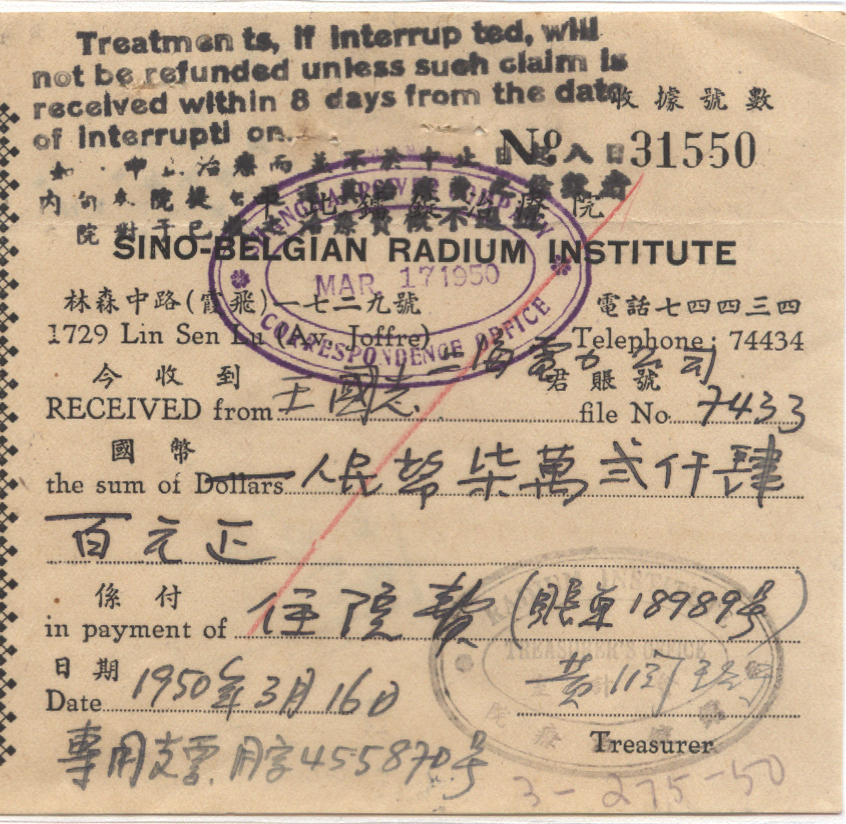 Treatments, if interrupted, will
not be refunded unless such claim is
received within 8 days from the date
of interruption.
收據號數
No 31550
治療而 不於中止日起八日
內向本院提
院對于已 治療費概不退
中比鐳錠治療院
SINO-BELGIAN RADIUM INSTITUTE
SHANGHAI POWER COMPANY
MAR. 17 1950
CORRESPONDENCE OFFICE
林森中路(霞飛)一七二九號
電話七四四三四
1729 Lin Sen Lu (Av. Joffre)
Telephone: 74434
上海電力公司
今收到 君賬號
RECEIVED from 王國志 file No. 7433
國幣
the sum of Dollars 人民幣柒萬弍仟肆
百元正
係付
in payment of 住院費 (賬單18989号)
RADIUM INSTITUTE
TREASURER'S OFFICE
日期
Date 1950年3月16日
黃
Treasurer
專用支票 用字455870号
3-275-50